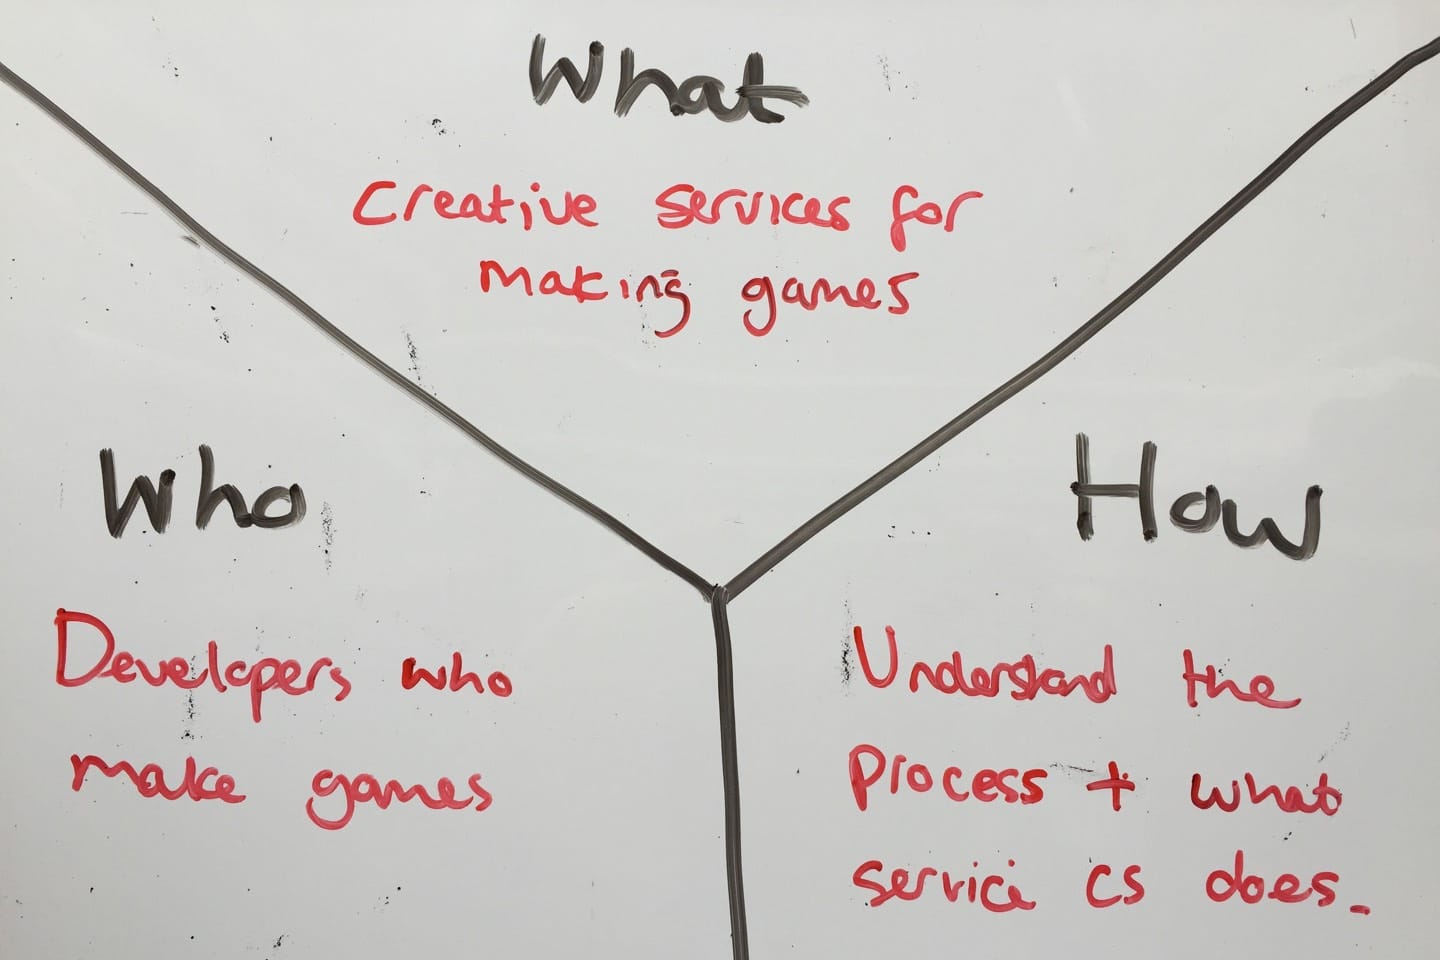 What
Creative services for
making games
Who
Developers who
make games
How
Understand the
process + what
service CS does.